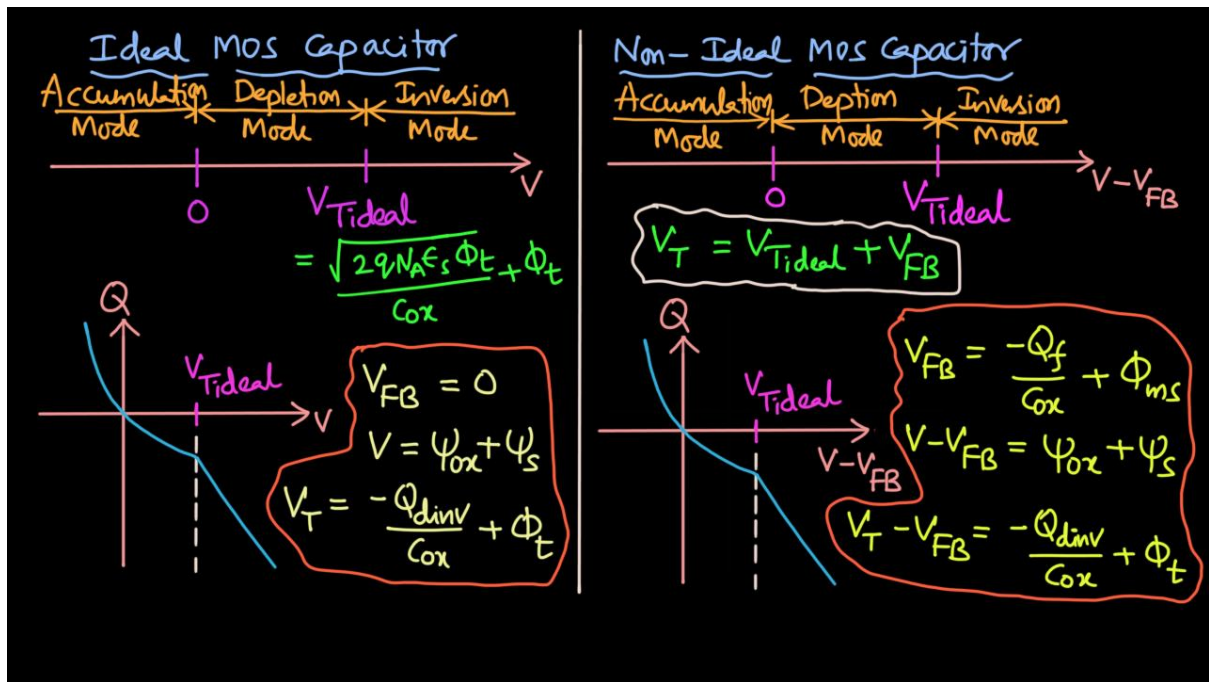 Ideal MOS Capacitor
Accumulation Mode
Depletion Mode
Inversion Mode
0
V_Tideal
V
= √(2qN_Aϵ_sΦ_t)/Cox + Φ_t
Q
V_Tideal
V
V_FB = 0
V = ψ_ox + ψ_s
V_T = -Q_dinv/Cox + Φ_t
Non-Ideal MOS Capacitor
Accumulation Mode
Deption Mode
Inversion Mode
0
V_Tideal
V-V_FB
V_T = V_Tideal + V_FB
Q
V_Tideal
V-V_FB
V_FB = -Q_f/Cox + Φ_ms
V-V_FB = ψ_ox + ψ_s
V_T - V_FB = -Q_dinv/Cox + Φ_t